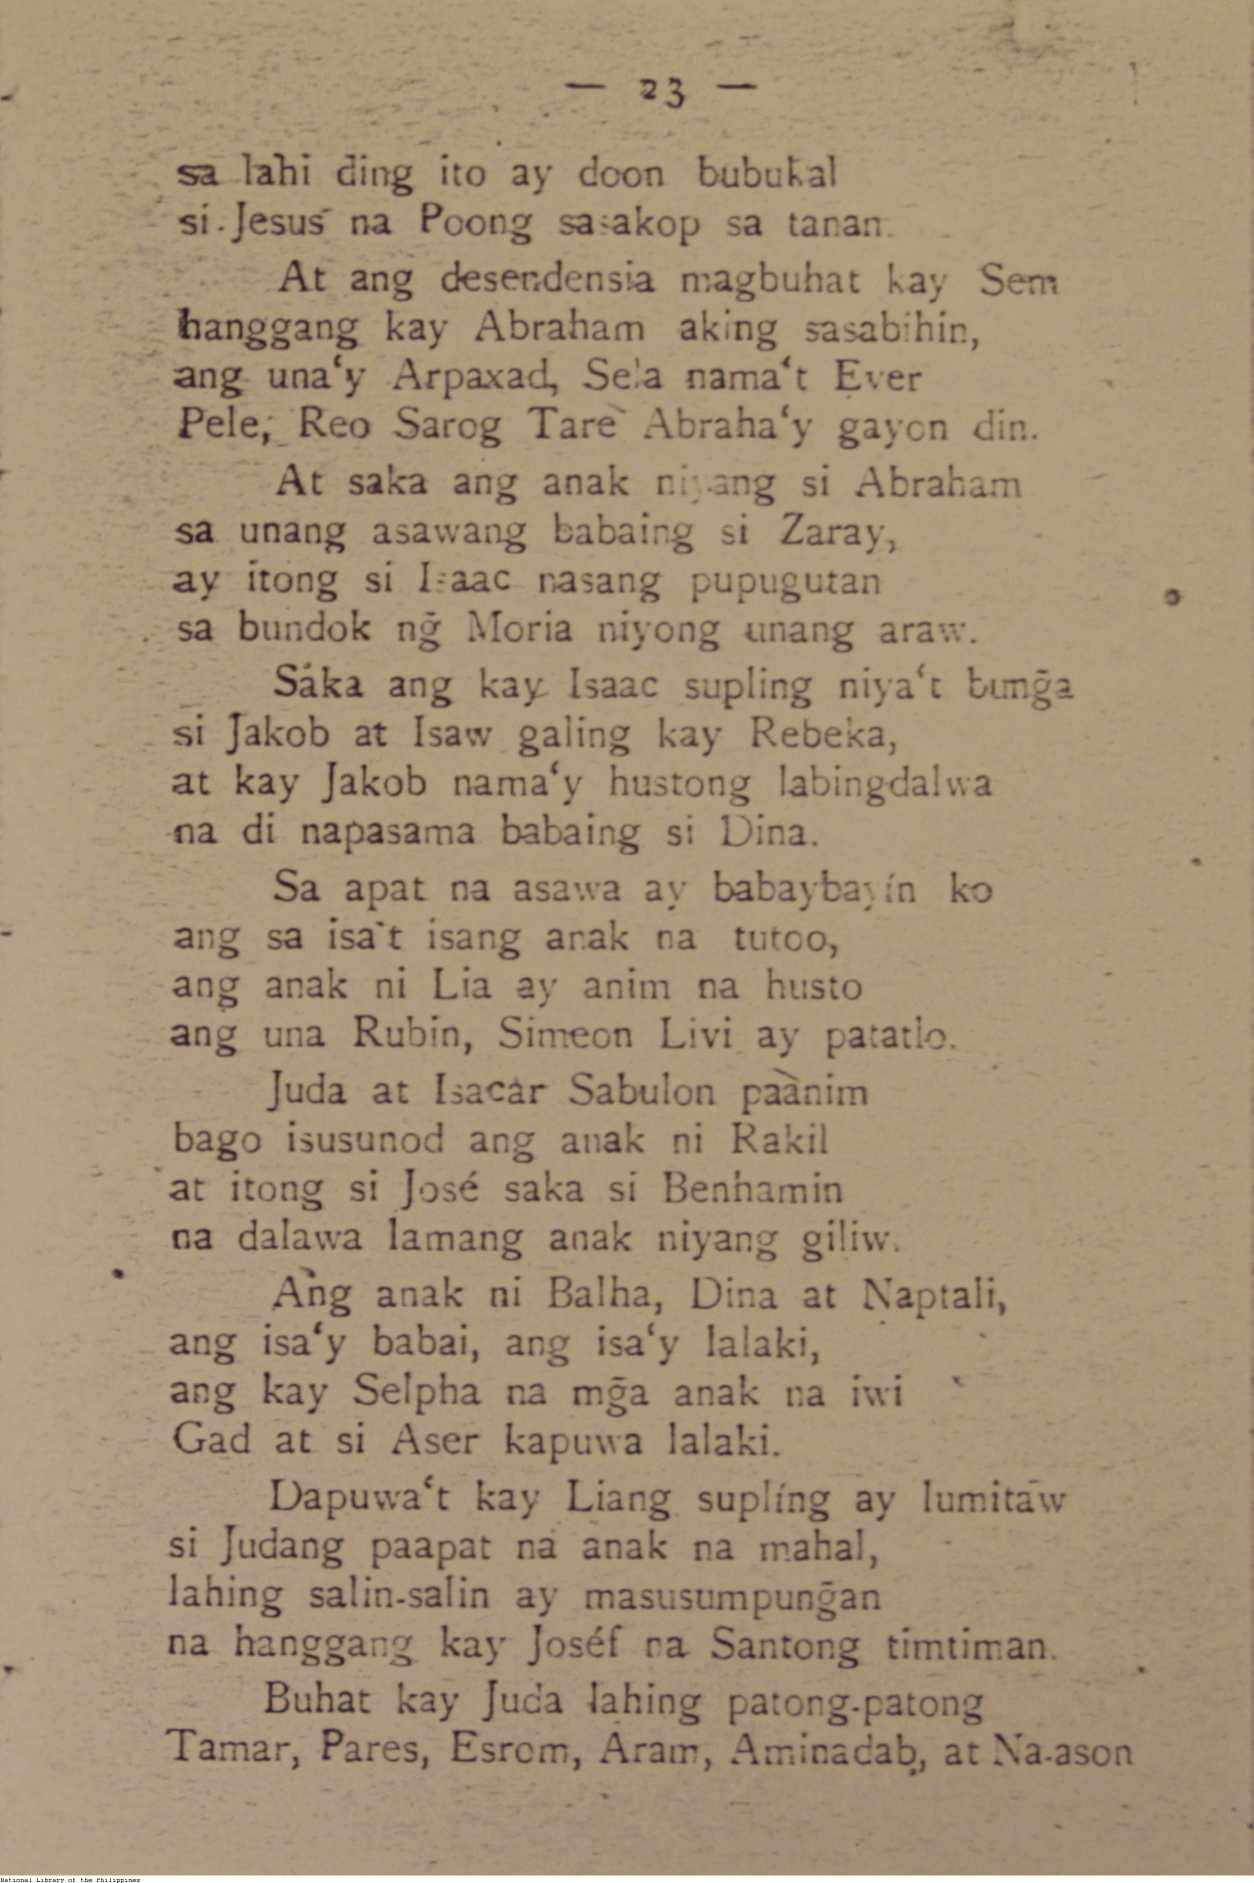 — 23 —
sa lahi ding ito ay doon bubukal
si Jesus na Poong sasakop sa tanan.
At ang desendensia magbuhat kay Sem
hanggang kay Abraham aking sasabihin,
ang una‘y Arpaxad, Sela nama‘t Ever
Pele, Reo Sarog Tare Abraha‘y gayon din.
At saka ang anak niyang si Abraham
sa unang asawang babaing si Zaray,
ay itong si Isaac nasang pupugutan
sa bundok ng̃ Moria niyong unang araw.
Sáka ang kay Isaac supling niya‘t bung̃a
si Jakob at Isaw galing kay Rebeka,
at kay Jakob nama‘y hustong labingdalwa
na di napasama babaing si Dina.
Sa apat na asawa ay babaybayín ko
ang sa isa‘t isang anak na tutoo,
ang anak ni Lia ay anim na husto
ang una Rubin, Simeon Livi ay patatlo.
Juda at Isacar Sabulon paanim
bago isusunod ang anak ni Rakil
at itong si José saka si Benhamin
na dalawa lamang anak niyang giliw.
Ang anak ni Balha, Dina at Naptali,
ang isa‘y babai, ang isa‘y lalaki,
ang kay Selpha na mg̃a anak na iwi
Gad at si Aser kapuwa lalaki.
Dapuwa‘t kay Liang suplíng ay lumitaw
si Judang paapat na anak na mahal,
lahing salin-salin ay masusumpung̃an
na hanggang kay Joséf na Santong timtiman.
Buhat kay Juda lahing patong-patong
Tamar, Pares, Esrom, Aram, Aminadab, at Na-ason
National Library of the Philippines